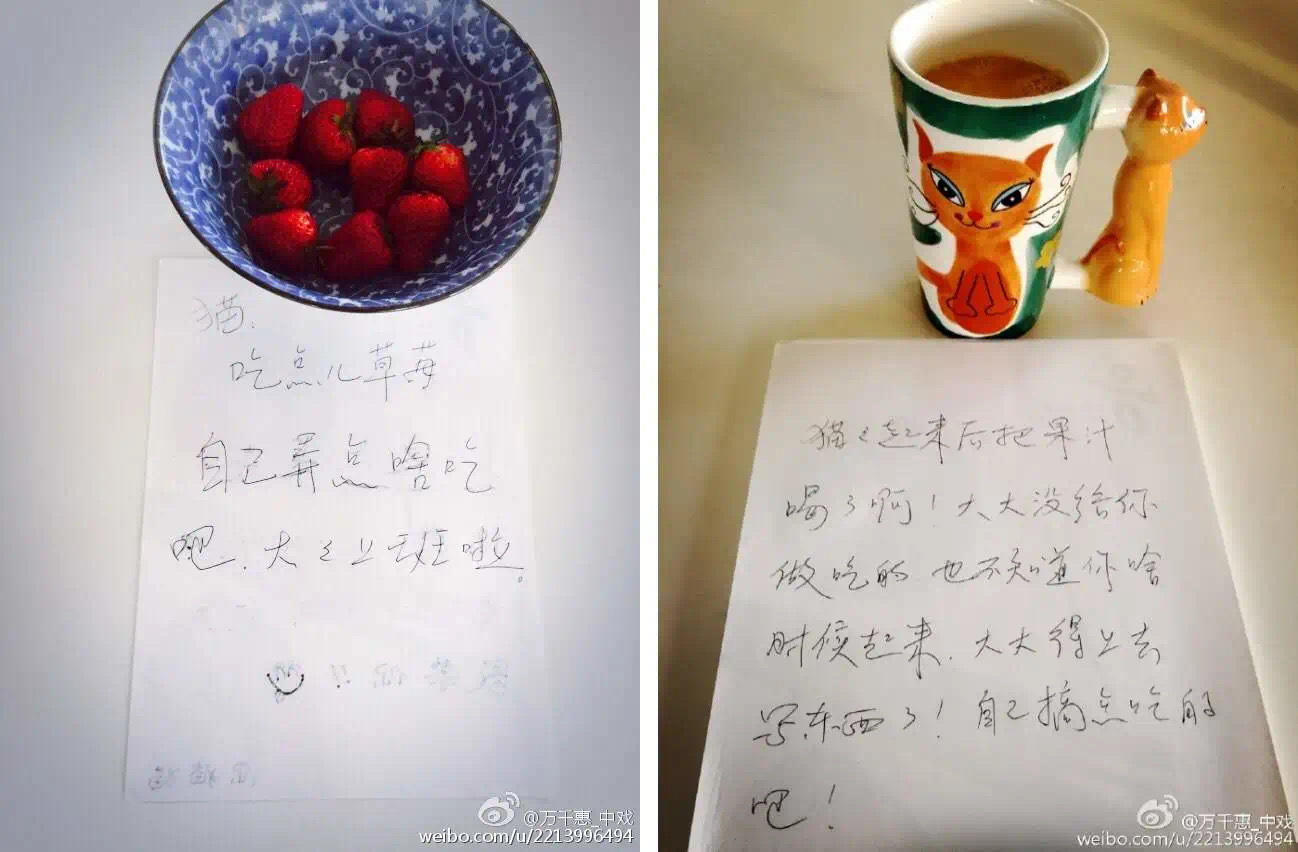 猫.
吃点儿草莓
自己弄点啥吃
吧.大々上班啦。
@万千惠_中戏
weibo.com/u/2213996494
猫々起来后把果汁
喝了啊!大大没给你
做吃的 也不知道你啥
时候起来.大大得上去
写东西了!自己搞点吃的
吧!
@万千惠_中戏
weibo.com/u/2213996494